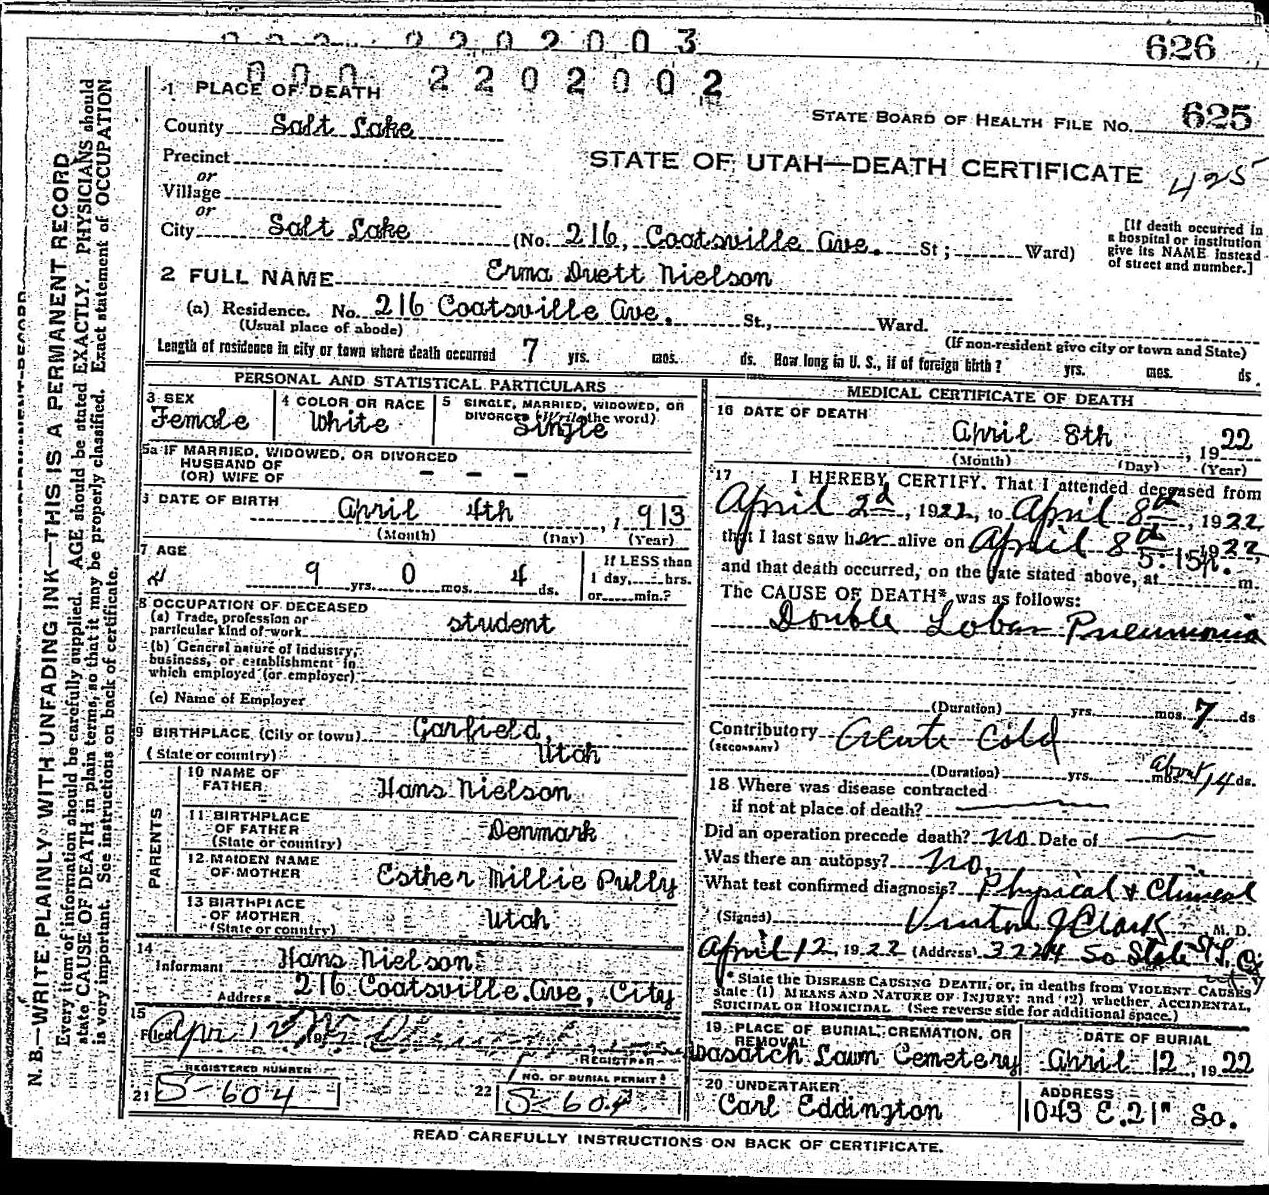 0 0 0 2 2 0 2 0 0 3
626
0 0 0 2 2 0 2 0 0 2
1 PLACE OF DEATH
STATE BOARD OF HEALTH FILE No. 625
County Salt Lake
STATE OF UTAH—DEATH CERTIFICATE
425
Precinct
or
Village
or
City Salt Lake (No. 216, Coatsville Ave. St; Ward)
[If death occurred in
a hospital or institution
give its NAME instead
of street and number.]
2 FULL NAME Erma Duett Nielson
(a) Residence. No. 216 Coatsville Ave. St., Ward.
(Usual place of abode)
(If non-resident give city or town and State)
Length of residence in city or town where death occurred 7 yrs. mos. ds. How long in U. S., if of foreign birth? yrs. mos. ds.
PERSONAL AND STATISTICAL PARTICULARS
3 SEX
Female
4 COLOR OR RACE
White
5 SINGLE, MARRIED, WIDOWED, OR
DIVORCED (Write the word)
Single
5a IF MARRIED, WIDOWED, OR DIVORCED
HUSBAND OF
(OR) WIFE OF - - -
DATE OF BIRTH April 4th, 1913
(Month) (Day) (Year)
7 AGE
9 yrs. 0 mos. 4 ds.
If LESS than
1 day, hrs.
or min.?
8 OCCUPATION OF DECEASED
(a) Trade, profession or
particular kind of work student
(b) General nature of industry,
business, or establishment in
which employed (or employer)
(c) Name of Employer
9 BIRTHPLACE (City or town) Garfield,
(State or country) Utah
PARENTS
10 NAME OF
FATHER Hans Nielson
11 BIRTHPLACE
OF FATHER Denmark
(State or country)
12 MAIDEN NAME
OF MOTHER Esther Millie Pully
13 BIRTHPLACE
OF MOTHER Utah
(State or country)
14
Informant Hans Nielson
Address 216 Coatsville Ave, City
15
Filed Apr 12 19
REGISTRAR
REGISTERED NUMBER
21 S-604
NO. OF BURIAL PERMIT
22 S-604
MEDICAL CERTIFICATE OF DEATH
16 DATE OF DEATH
April 8th, 1922
(Month) (Day) (Year)
17 I HEREBY CERTIFY. That I attended deceased from
April 2d, 1922, to April 8th, 1922
that I last saw her alive on April 8th 1922,
and that death occurred, on the date stated above, at 5:15 p. m.
The CAUSE OF DEATH* was as follows:
Double Lobar Pneumonia
(Duration) yrs. mos. 7 ds
Contributory Acute Cold
(SECONDARY)
(Duration) yrs. mos. about 14 ds.
18 Where was disease contracted
if not at place of death?
Did an operation precede death? no Date of
Was there an autopsy? no
What test confirmed diagnosis? Physical & Clinical
(Signed) Clark M. D.
April 12 1922 (Address) 3224 So State St.
* State the DISEASE CAUSING DEATH, or, in deaths from VIOLENT CAUSES,
state (1) MEANS AND NATURE OF INJURY: and (2) whether ACCIDENTAL,
SUICIDAL or HOMICIDAL (See reverse side for additional space.)
19 PLACE OF BURIAL, CREMATION, OR
REMOVAL
Wasatch Lawn Cemetery
DATE OF BURIAL
April 12, 1922
20 UNDERTAKER
Carl Eddington
ADDRESS
1043 E. 21" So.
READ CAREFULLY INSTRUCTIONS ON BACK OF CERTIFICATE.
N. B.—WRITE PLAINLY WITH UNFADING INK—THIS IS A PERMANENT RECORD
Every item of information should be carefully supplied. AGE should be stated EXACTLY. PHYSICIANS should
state CAUSE OF DEATH in plain terms, so that it may be properly classified. Exact statement of OCCUPATION
is very important. See instructions on back of certificate.